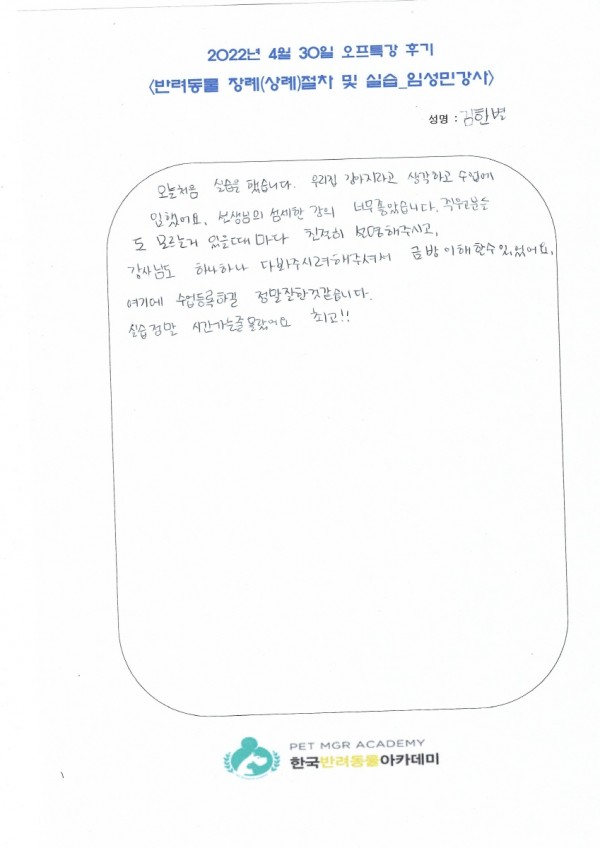 2022년 4월 30일 오프특강 후기
<반려동물 장례(상례)절차 및 실습_임성민강사>
성명 : 김한별
오늘처음 실습을 했습니다. 우리집 강아지라고 생각하고 수업에
임했어요. 선생님의 섬세한 강의 너무좋았습니다. 직원분들
도 모르는거 있을때마다 친절히 설명해주시고,
강사님도 하나하나 다봐주시려해주셔서 금방 이해할수있었어요.
여기에 수업등록하길 정말잘한것같습니다.
실습정말 시간가는줄몰랐어요 최고!!
PET MGR ACADEMY
한국반려동물아카데미